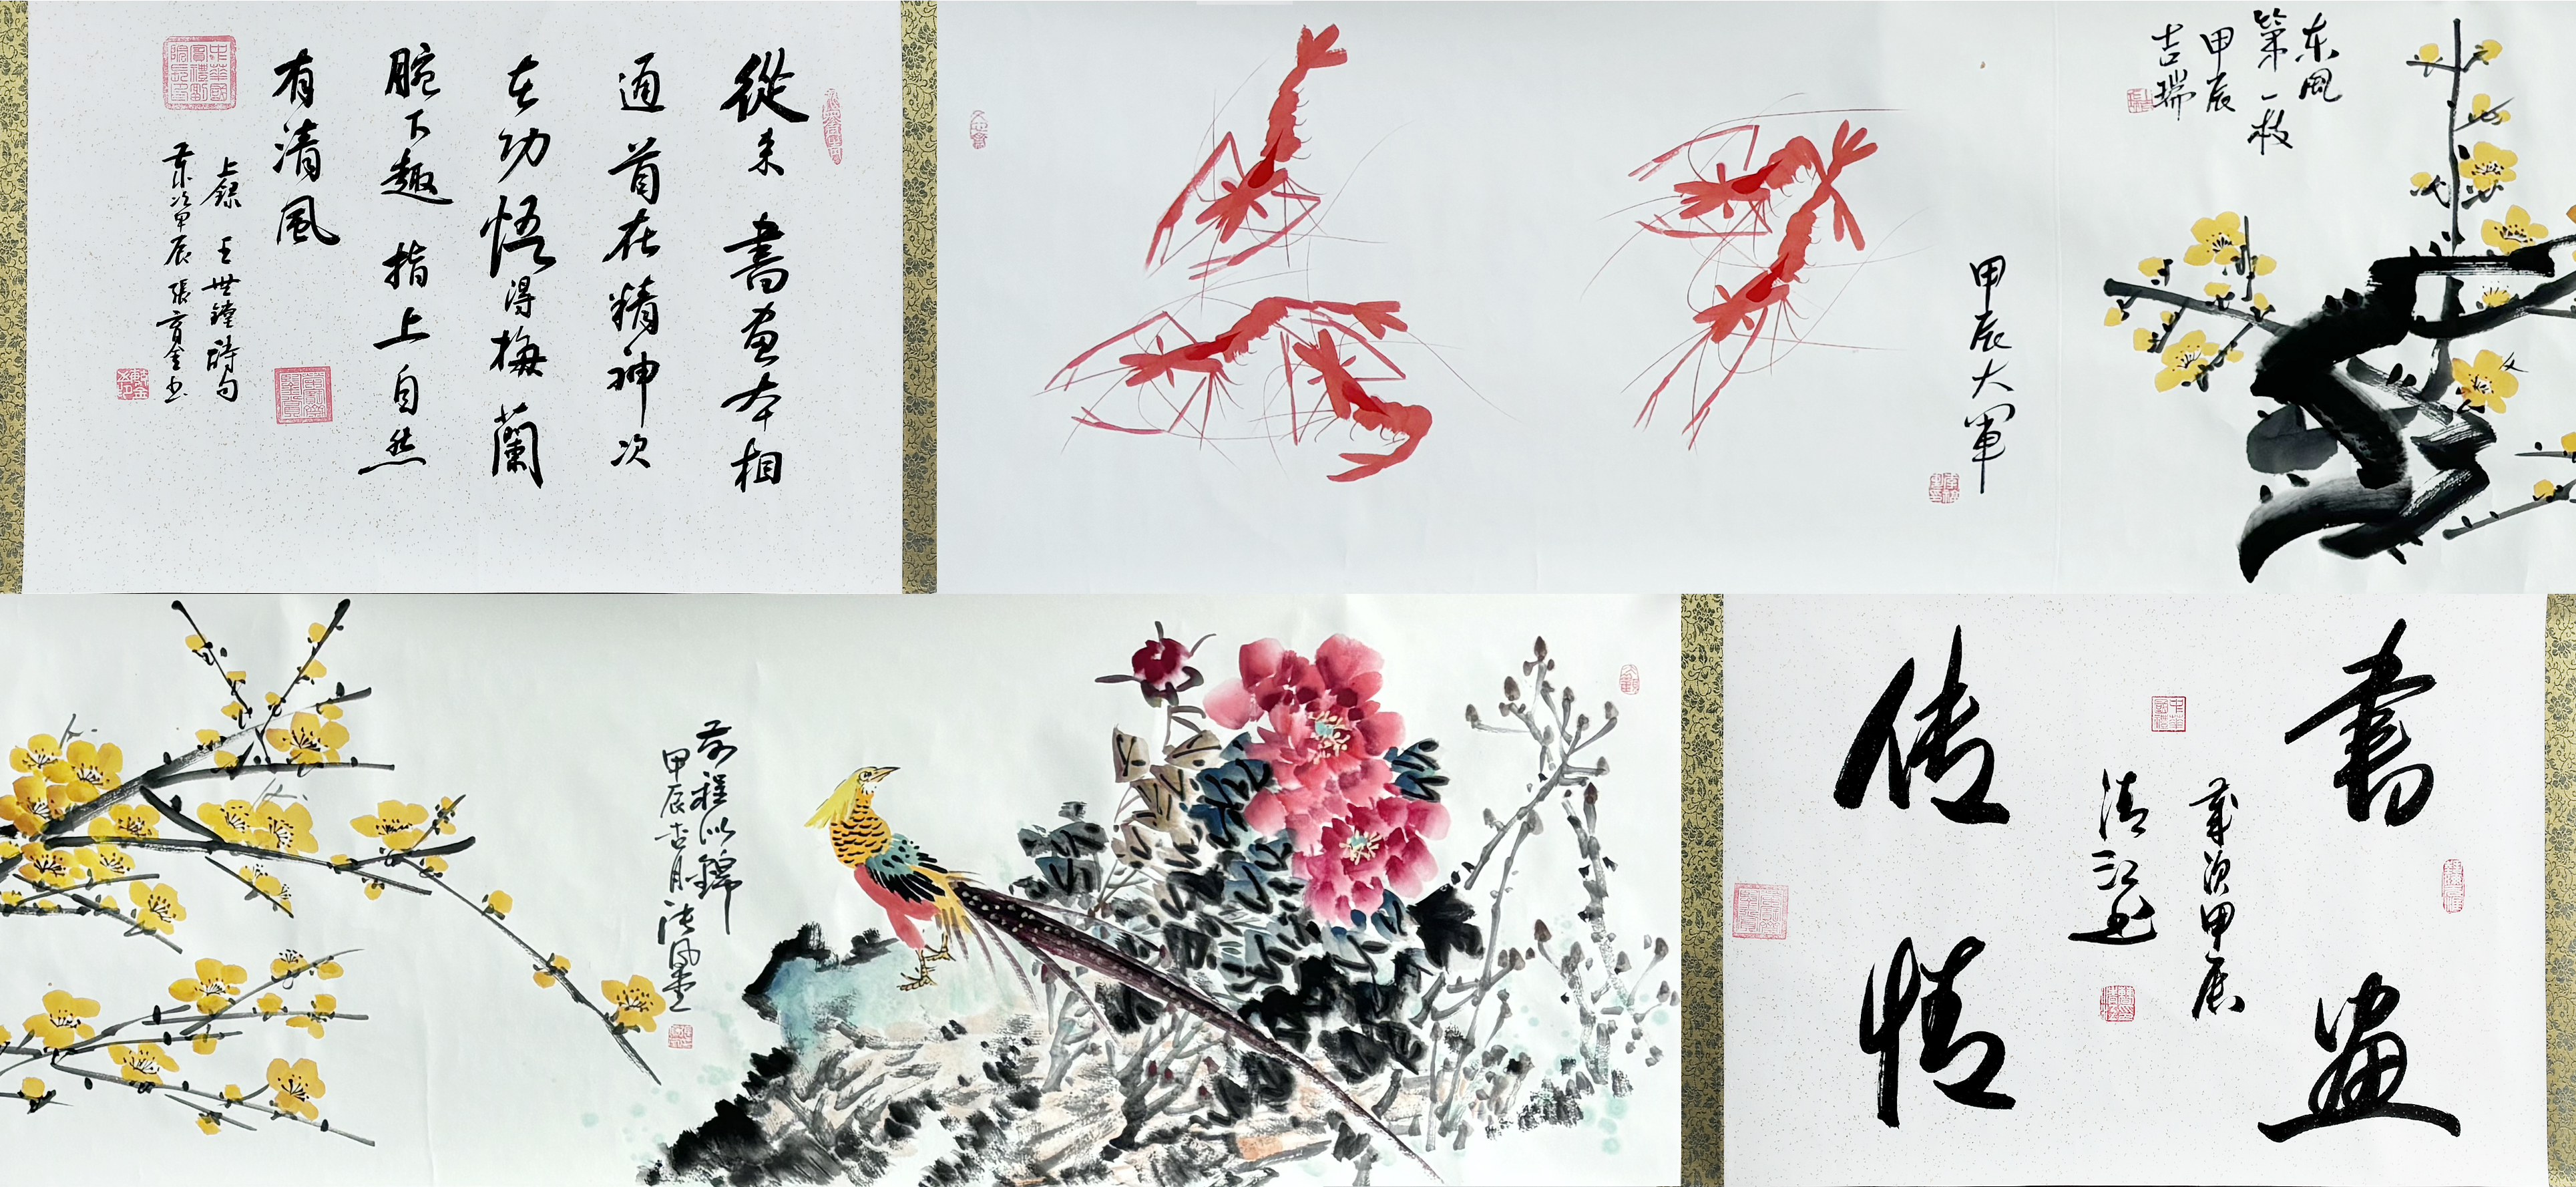 從来書画本相
通首在精神次
在功悟得梅蘭
腕下趣指上自然
有清風
上錄 王世鏜詩句
歲次甲辰 張育金书
甲辰大軍
东風
第一枝
甲辰
吉瑞
前程似錦
甲辰吉月
書画
歲次甲辰
清江书
传情